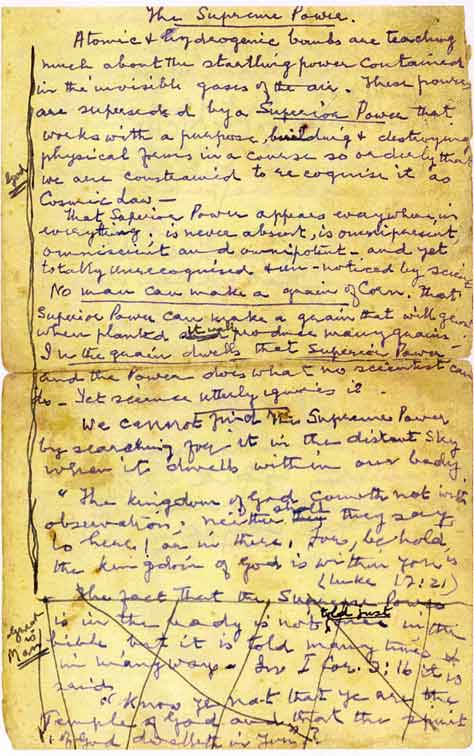 The Supreme Power.
Atomic & Hydrogenic bombs are teaching
much about the startling power contained
in the invisible gases of the air. These powers
are superseded by a Superior Power that
works with a purpose, building & destroying
physical forms in a course so orderly that
we are constrained to recognise it as
Cosmic Law.—
That Superior Power appears everywhere, in
everything, is never absent, is omnipresent,
omniscient and omnipotent - and yet
totally unrecognised & un-noticed by
No man can make a grain of Corn. That
Superior Power can make a grain that will
when planted it will produce many grains -
In the grain dwells that Superior Power
and the Power does what no scientist can
do - Yet science utterly ignores it.
We cannot find the Supreme Power
by searching for it in the distant Sky
when it dwells within our body.
"The kingdom of God cometh not with
observation; neither shall they say,
Lo here! or lo there, for, behold,
the kingdom of God is within you
(Luke 17:21)
The fact that the Superior Power
is in the body is not told just once in the
bible but it is told many times &
in many ways - In I Cor. 3:16 it is
said
"Know Ye not that ye are the
Temple of God and that the spirit
of God dwelleth in You?"
God
Great
is
Man